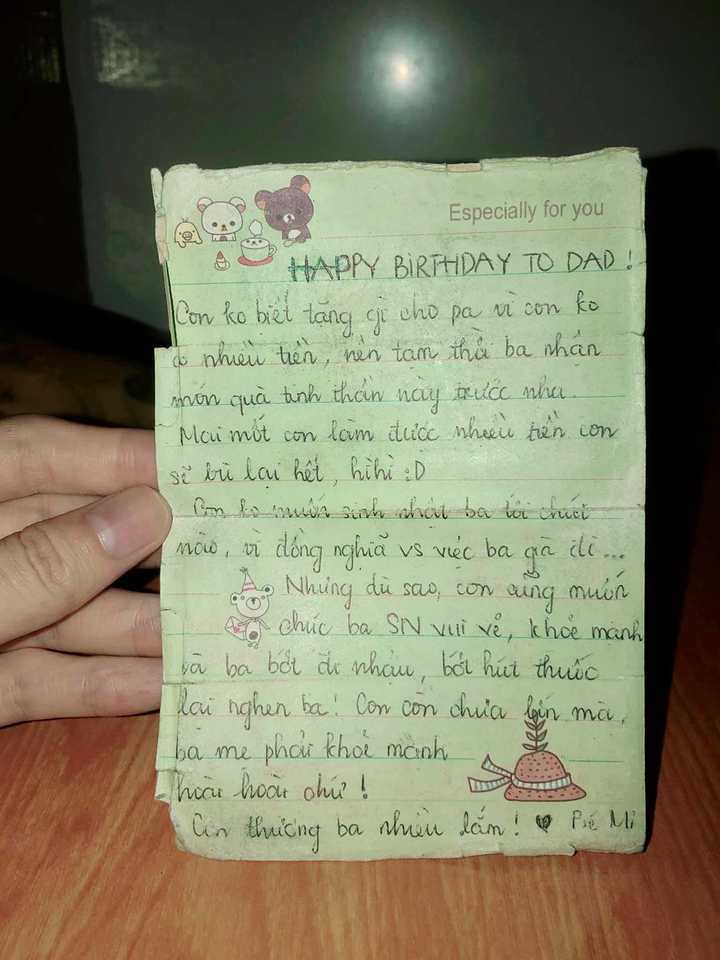 Especially for you
HAPPY BIRTHDAY TO DAD !
Con ko biết tặng gì cho pa vì con ko
có nhiều tiền, nên tạm thời ba nhận
món quà tinh thần này trước nha.
Mai mốt con làm được nhiều tiền con
sẽ bù lại hết, hihi :D
Con ko muốn sinh nhật ba tới chút
nào, vì đồng nghĩa vs việc ba già đi...
Nhưng dù sao, con cũng muốn
chúc ba SN vui vẻ, khoẻ mạnh
và ba bớt đi nhậu, bớt hút thuốc
lại nghen ba! Con còn chưa lớn mà,
ba mẹ phải khoẻ mạnh
hoài hoài chứ !
Con thương ba nhiều lắm ! ♥ Bé Mi